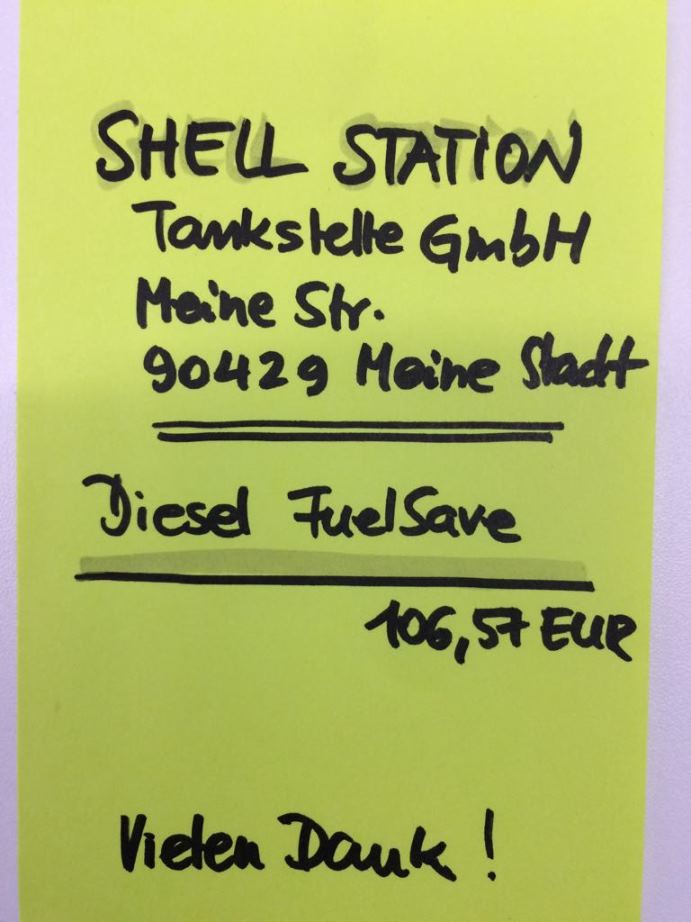 SHELL STATION
Tankstelle GmbH
Meine Str.
90429 Meine Stadt
Diesel FuelSave
106,57 EUR
Vielen Dank!